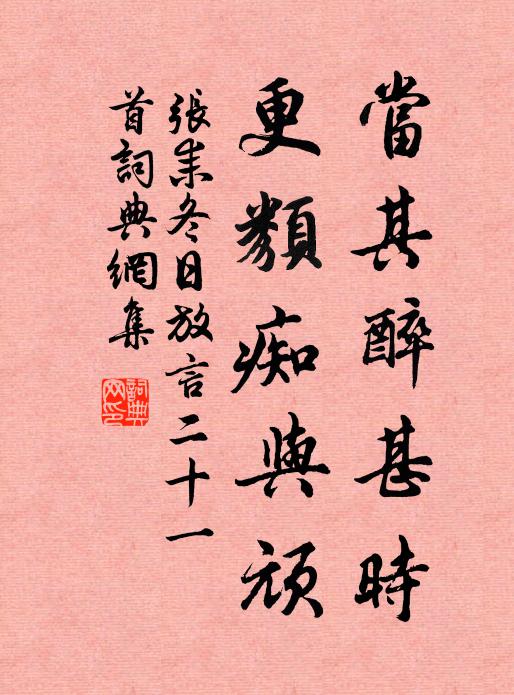 當其醉甚時
更類痴與頑
張耒冬日放言二十一
首詞典網集
詞典網印